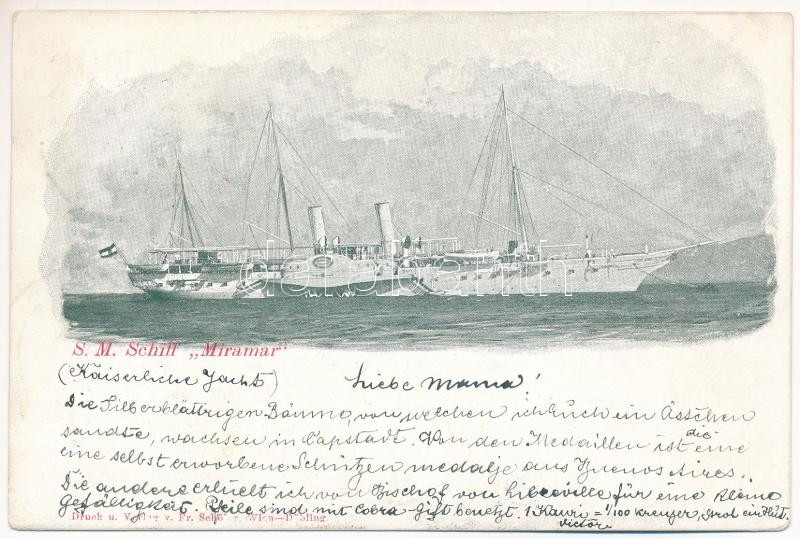 S. M. Schiff „Miramar“
(Kaiserliche Jacht) Liebe Mama!
Die Silberblättrigen Bäume, von welchen ich Euch ein Ästchen
sandte, wachsen in Capstadt. Von den Medaillen ist die eine
eine selbst erworbene Schützen medalje aus Buenos Aires.
Die andere erhielt ich von Bischof von Libreville für eine kleine
gefälligkeit. Pfeile sind mit Cobra-gift benetzt. 1 Kauri = 1/100 kreuzer,
Victor
Druck u. Verlag v. Fr. Wien—Döbling.